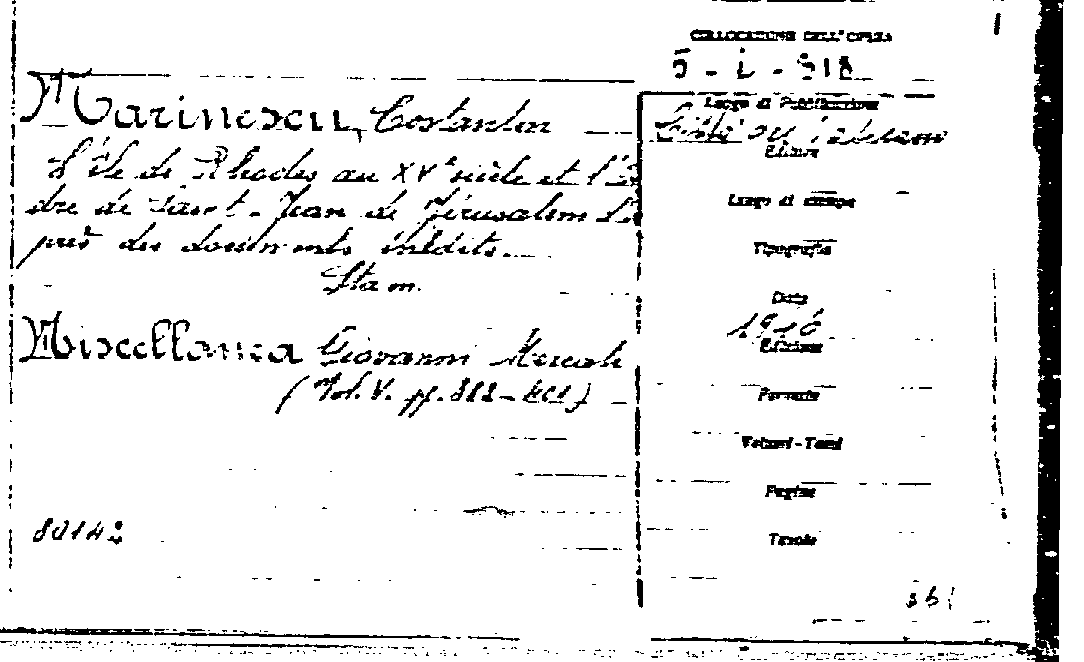 COLLOCAZIONE DELL'OPERA
5 - L - 918
Marinescu, Costantin
L'île de Rhodes au XVe siècle et l'Or
dre de Saint-Jean de Jérusalem d'a
près des documents inédits.
Stam.
Miscellanea Giovanni Mercati
(Vol. V. pp. 382-401)
80142
Luogo di Pubblicazione
Città del Vaticano
Editore
Luogo di stampa
Tipografia
Data
1946
Edizione
Formato
Volumi-Tomi
Pagine
Tavole